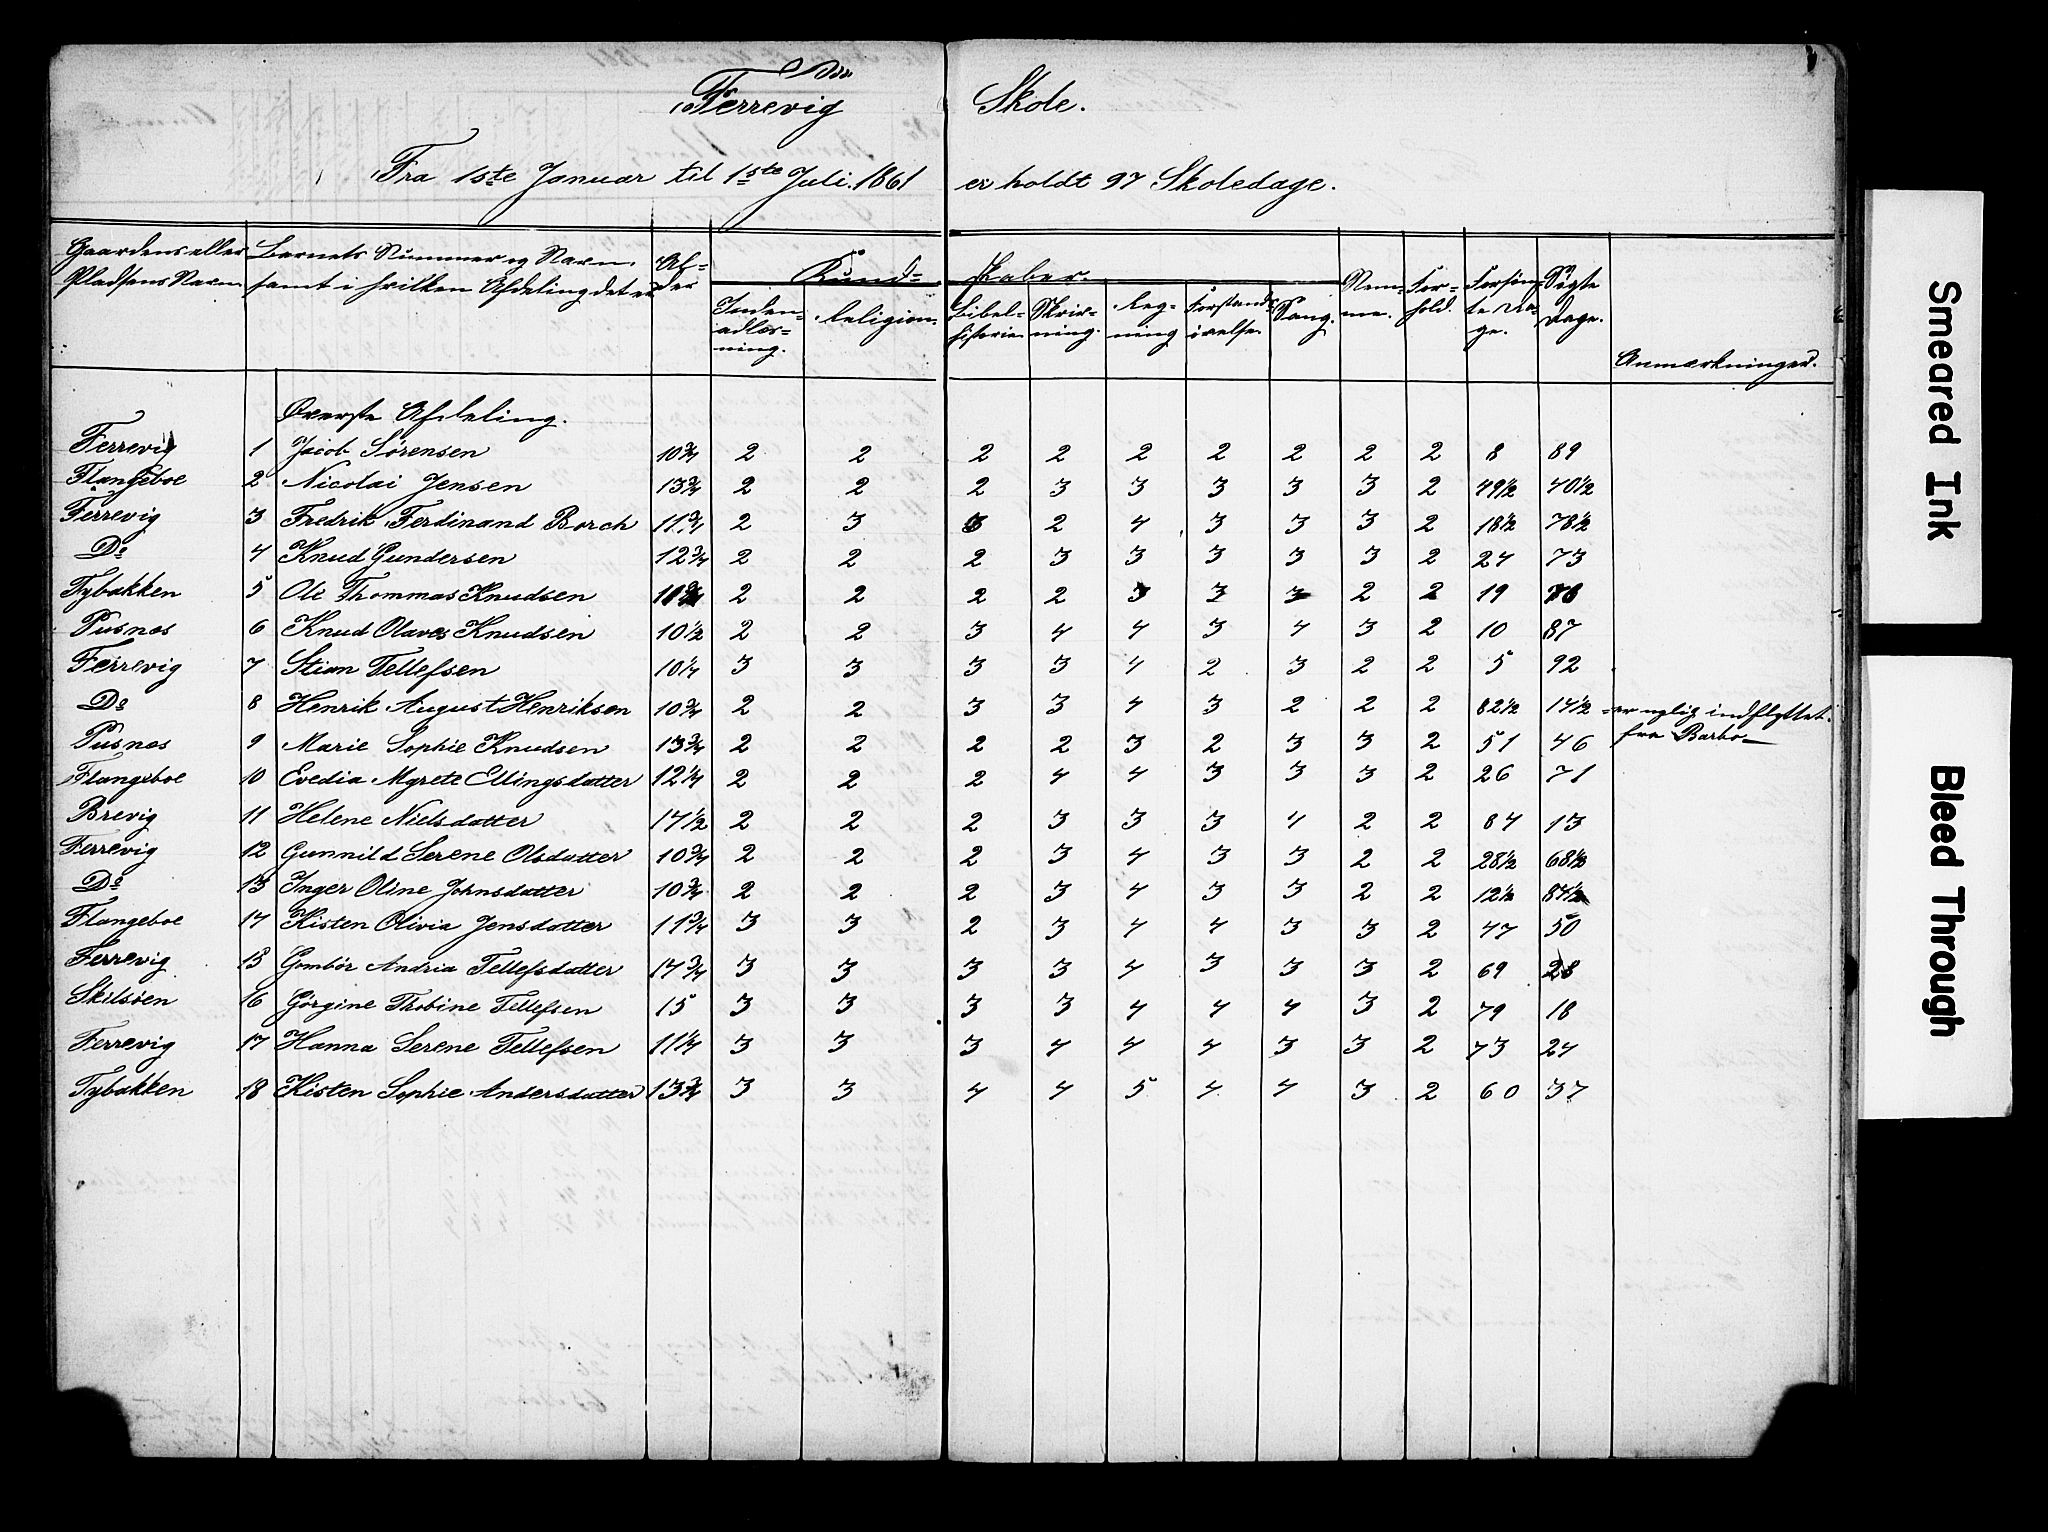 Ferrevig Skole.
Fra 1ste Januar til 1ste Juli. 1861 er holdt 97 Skoledage.
Gaardens eller Pladsens Navn
Barnets Nummer og Navn, samt i hvilken Afdeling det er
Al-der
Kund-skaber.
Inden-adlæs-ning.
Religion.
Bibel-historie.
Skriv-ning.
Reg-ning
Forstands-øvelse.
Sang.
Nem-me.
For-hold.
Forsøm-te Da-ge.
Søgte Dage.
Anmærkninger.
Øverste Afdeling.
Ferrevig 1 Jacob Sørensen 10 3/4 2 2 2 2 2 2 2 2 2 8 89
Flangeboe 2 Nicolai Jensen 13 3/4 2 2 2 3 3 3 3 3 2 49 1/2 40 1/2
Ferrevig 3 Fredrik Ferdinand Borch 11 3/4 2 3 3 2 4 3 3 3 2 18 1/2 78 1/2
Do 4 Knud Gundersen 12 3/4 2 2 2 3 3 3 3 3 2 24 73
Tybakken 5 Ole Thommas Knudsen 2 2 2 2 3 3 3 2 2 19 78
Pusnes 6 Knud Olaves Knudsen 10 1/2 2 2 3 4 4 3 4 3 2 10 87
Ferrevig 7 Stian Tellefsen 10 1/4 3 3 3 3 4 2 3 2 2 5 92
Do 8 Henrik August Henriksen 10 3/4 2 2 3 3 4 3 2 2 2 82 1/2 14 1/2 er nylig indflyttet
fra Barbo
Pusnes 9 Marie Sophie Knudsen 13 3/4 2 2 2 2 3 2 3 3 2 51 46
Flangeboe 10 Evedia Mgrete Ellingsdatter 12 1/4 2 2 2 4 4 3 3 3 2 26 71
Brevig 11 Helene Nielsdatter 14 1/2 2 2 2 3 3 3 4 2 2 84 13
Ferrevig 12 Gunnild Serene Olsdatter 10 3/4 2 2 2 3 4 3 3 2 2 28 1/2 68 1/2
Do 13 Inger Oline Johnsdatter 10 3/4 2 2 2 3 4 3 3 2 2 12 1/2 84 1/2
Flangeboe 14 Kisten Olivia Jensdatter 11 3/4 3 3 2 3 4 4 3 3 2 47 50
Ferrevig 15 Gombör Andria Tellefsdatter 14 3/4 3 3 3 3 4 3 3 3 2 69 28
Skilsöen 16 Görgine Thobine Tellefsen 15 3 3 3 3 4 4 4 3 2 79 18
Ferrevig 17 Hanna Serene Tellefsen 11 1/4 3 3 3 4 4 4 3 3 2 73 24
Tybakken 18 Kisten Sophie Andersdatter 13 3/4 3 3 4 4 5 4 4 3 2 60 37
Smeared Ink
Bleed Through